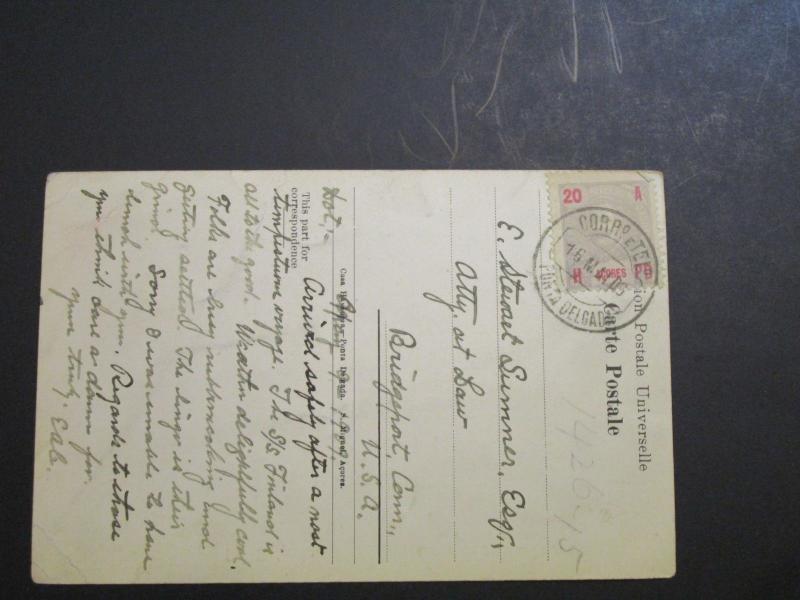 Union Postale Universelle
Carte Postale
20 A
AÇORES
H PD
CORRO E TEL
PONTA DELGADA
1426-15
E. Stewart Sumner, Esq.,
Atty. at Law
Bridgeport, Conn.,
U.S.A.
Ponta Delgada, S. Miguel, Açores.
This part for
correspondence
Arrived safely after a most
tempestuous voyage. The S/S Finland is
all to the good. Weather delightfully cool.
Folks are busy rubbernecking and
getting settled. The lingo is their
Sorry I was unable to have
lunch with you. Regards to those
you think care a damn for.
yours truly,